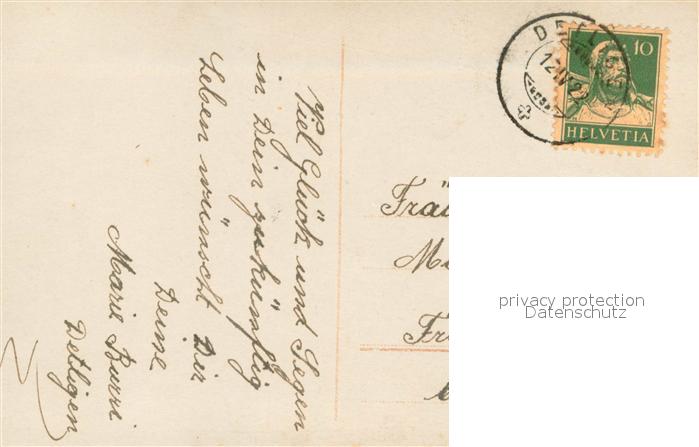 Viel Glück und Segen
in Dein zukünftig
Leben wünscht Dir
Deine
Marie Burri
Detligen
10
HELVETIA
Fräu
privacy protection
Datenschutz